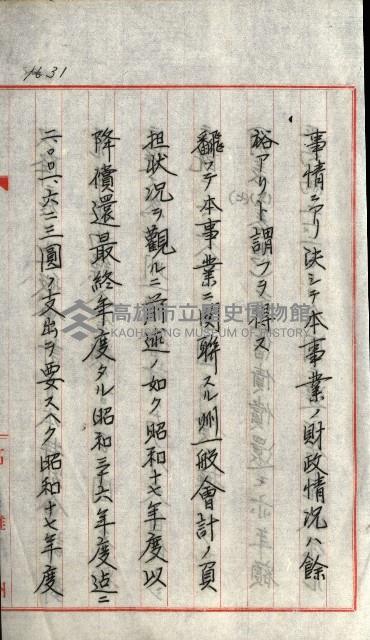 1631
事情ニアリ決シテ本事業ノ財政情況ハ餘
裕アリト謂フヲ得ス
飜テ本事業ニ関聯スル州一般會計ノ負
担状況ヲ觀ルニ前述ノ如ク昭和十七年度以
降償還最終年度タル昭和三十六年度迠ニ
二、〇〇一、六二三圓ノ支出ヲ要スヘク昭和十七年度
高雄市立歷史博物館
KAOHSIUNG MUSEUM OF HISTORY